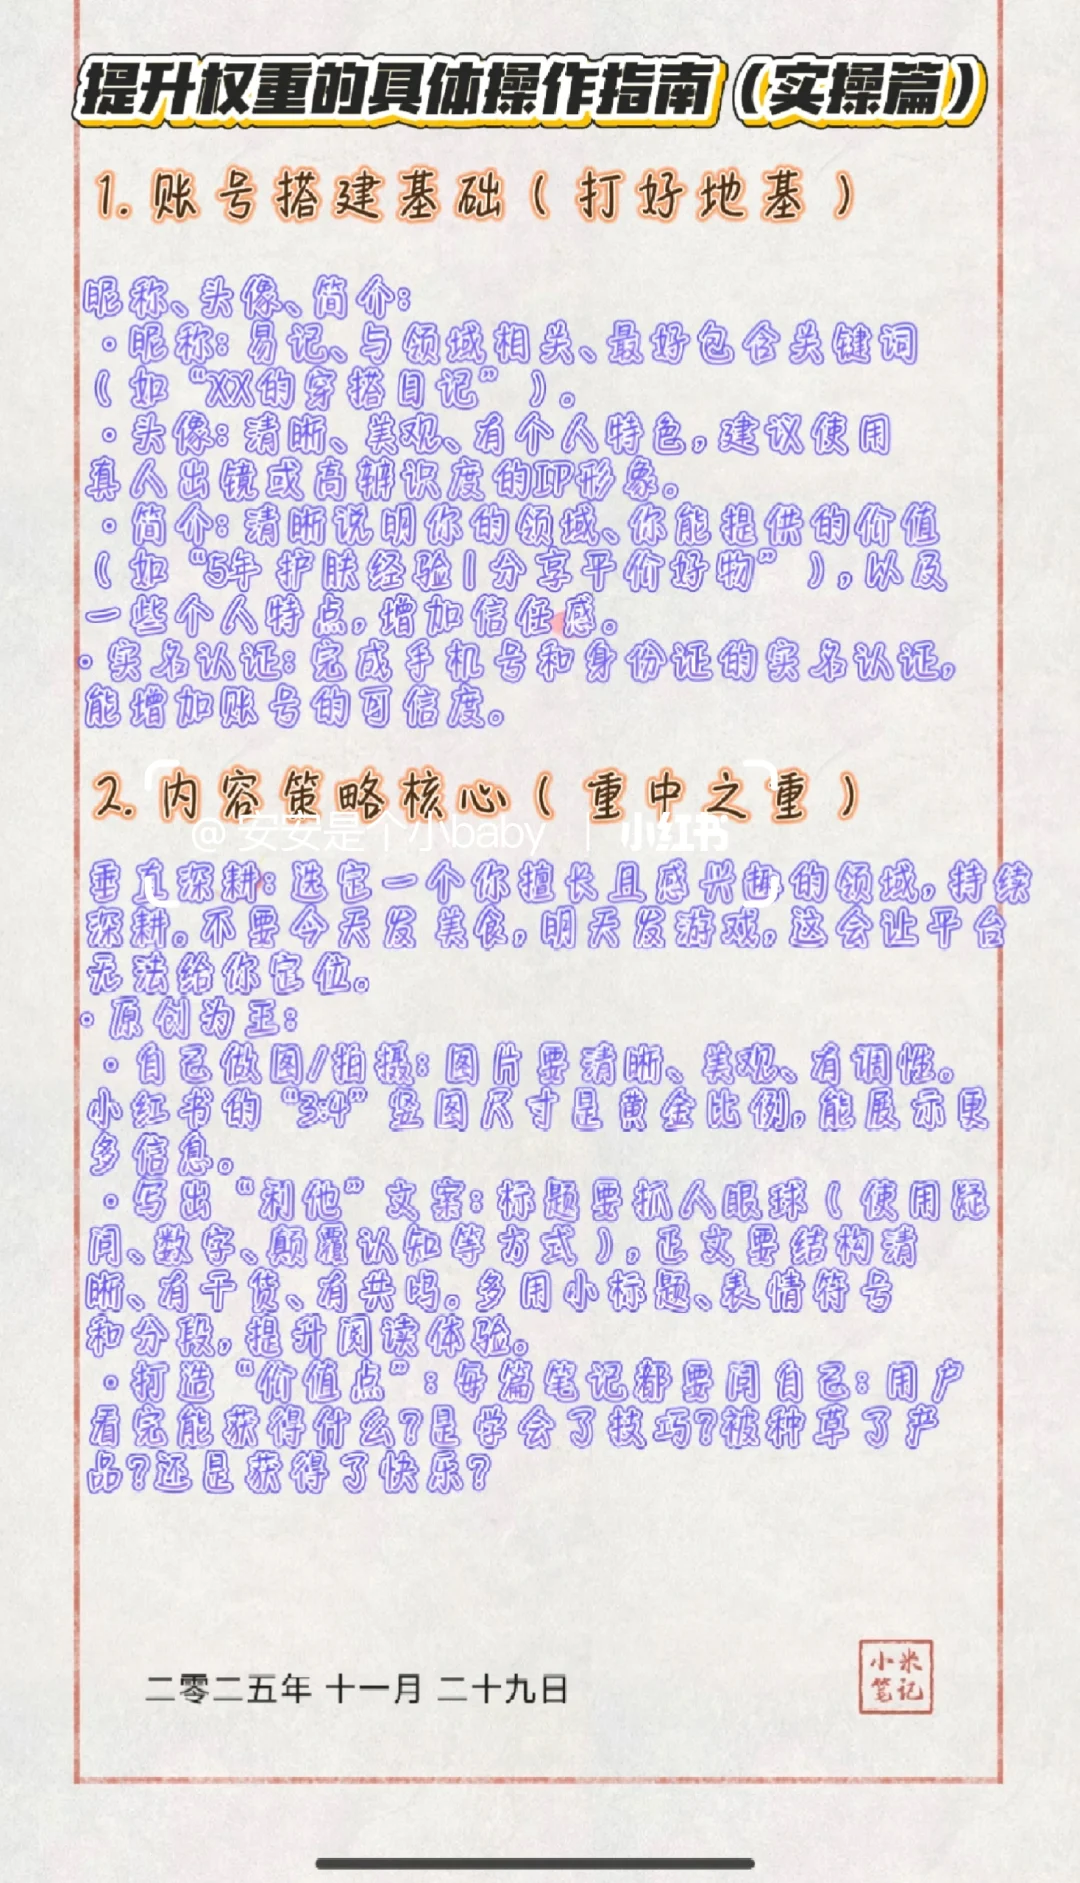 提升权重的具体操作指南（实操篇）
1.账号搭建基础（打好地基）
昵称、头像、简介：
·昵称：易记、与领域相关、最好包含关键词
（如“XX的穿搭日记”）。
·头像：清晰、美观、有个人特色，建议使用
真人出镜或高辨识度的IP形象。
·简介：清晰说明你的领域、你能提供的价值
（如“5年护肤经验|分享平价好物”），以及
一些个人特点，增加信任感。
·实名认证：完成手机号和身份证的实名认证，
能增加账号的可信度。
2.内容策略核心（重中之重）
@安安是个小baby | 小红书
垂直深耕：选定一个你擅长且感兴趣的领域，持续
深耕。不要今天发美食，明天发游戏，这会让平台
无法给你定位。
·原创为王：
·自己做图/拍摄：图片要清晰、美观、有调性。
小红书的“3:4”竖图尺寸是黄金比例，能展示更
多信息。
·写出“利他”文案：标题要抓人眼球（使用疑
问、数字、颠覆认知等方式），正文要结构清
晰、有干货、有共鸣。多用小标题、表情符号
和分段，提升阅读体验。
·打造“价值点”：每篇笔记都要问自己：用户
看完能获得什么？是学会了技巧？被种草了产
品？还是获得了快乐？
二零二五年 十一月 二十九日
小米
笔记